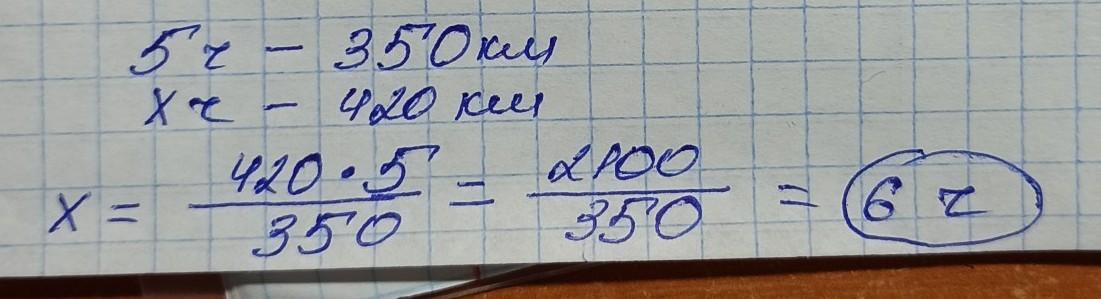 5ч - 350км
xч - 420 км
x = 420 · 5 / 350 = 2100 / 350 = 6 ч